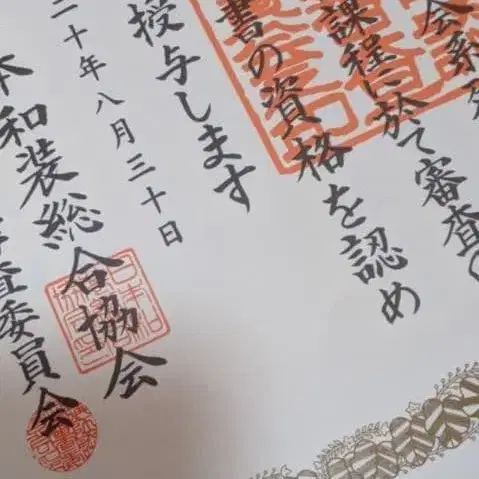 会系列
課程に於て審査の
書の資格を認め
授与します
二十年八月三十日
本和装総合協会
審査委員会